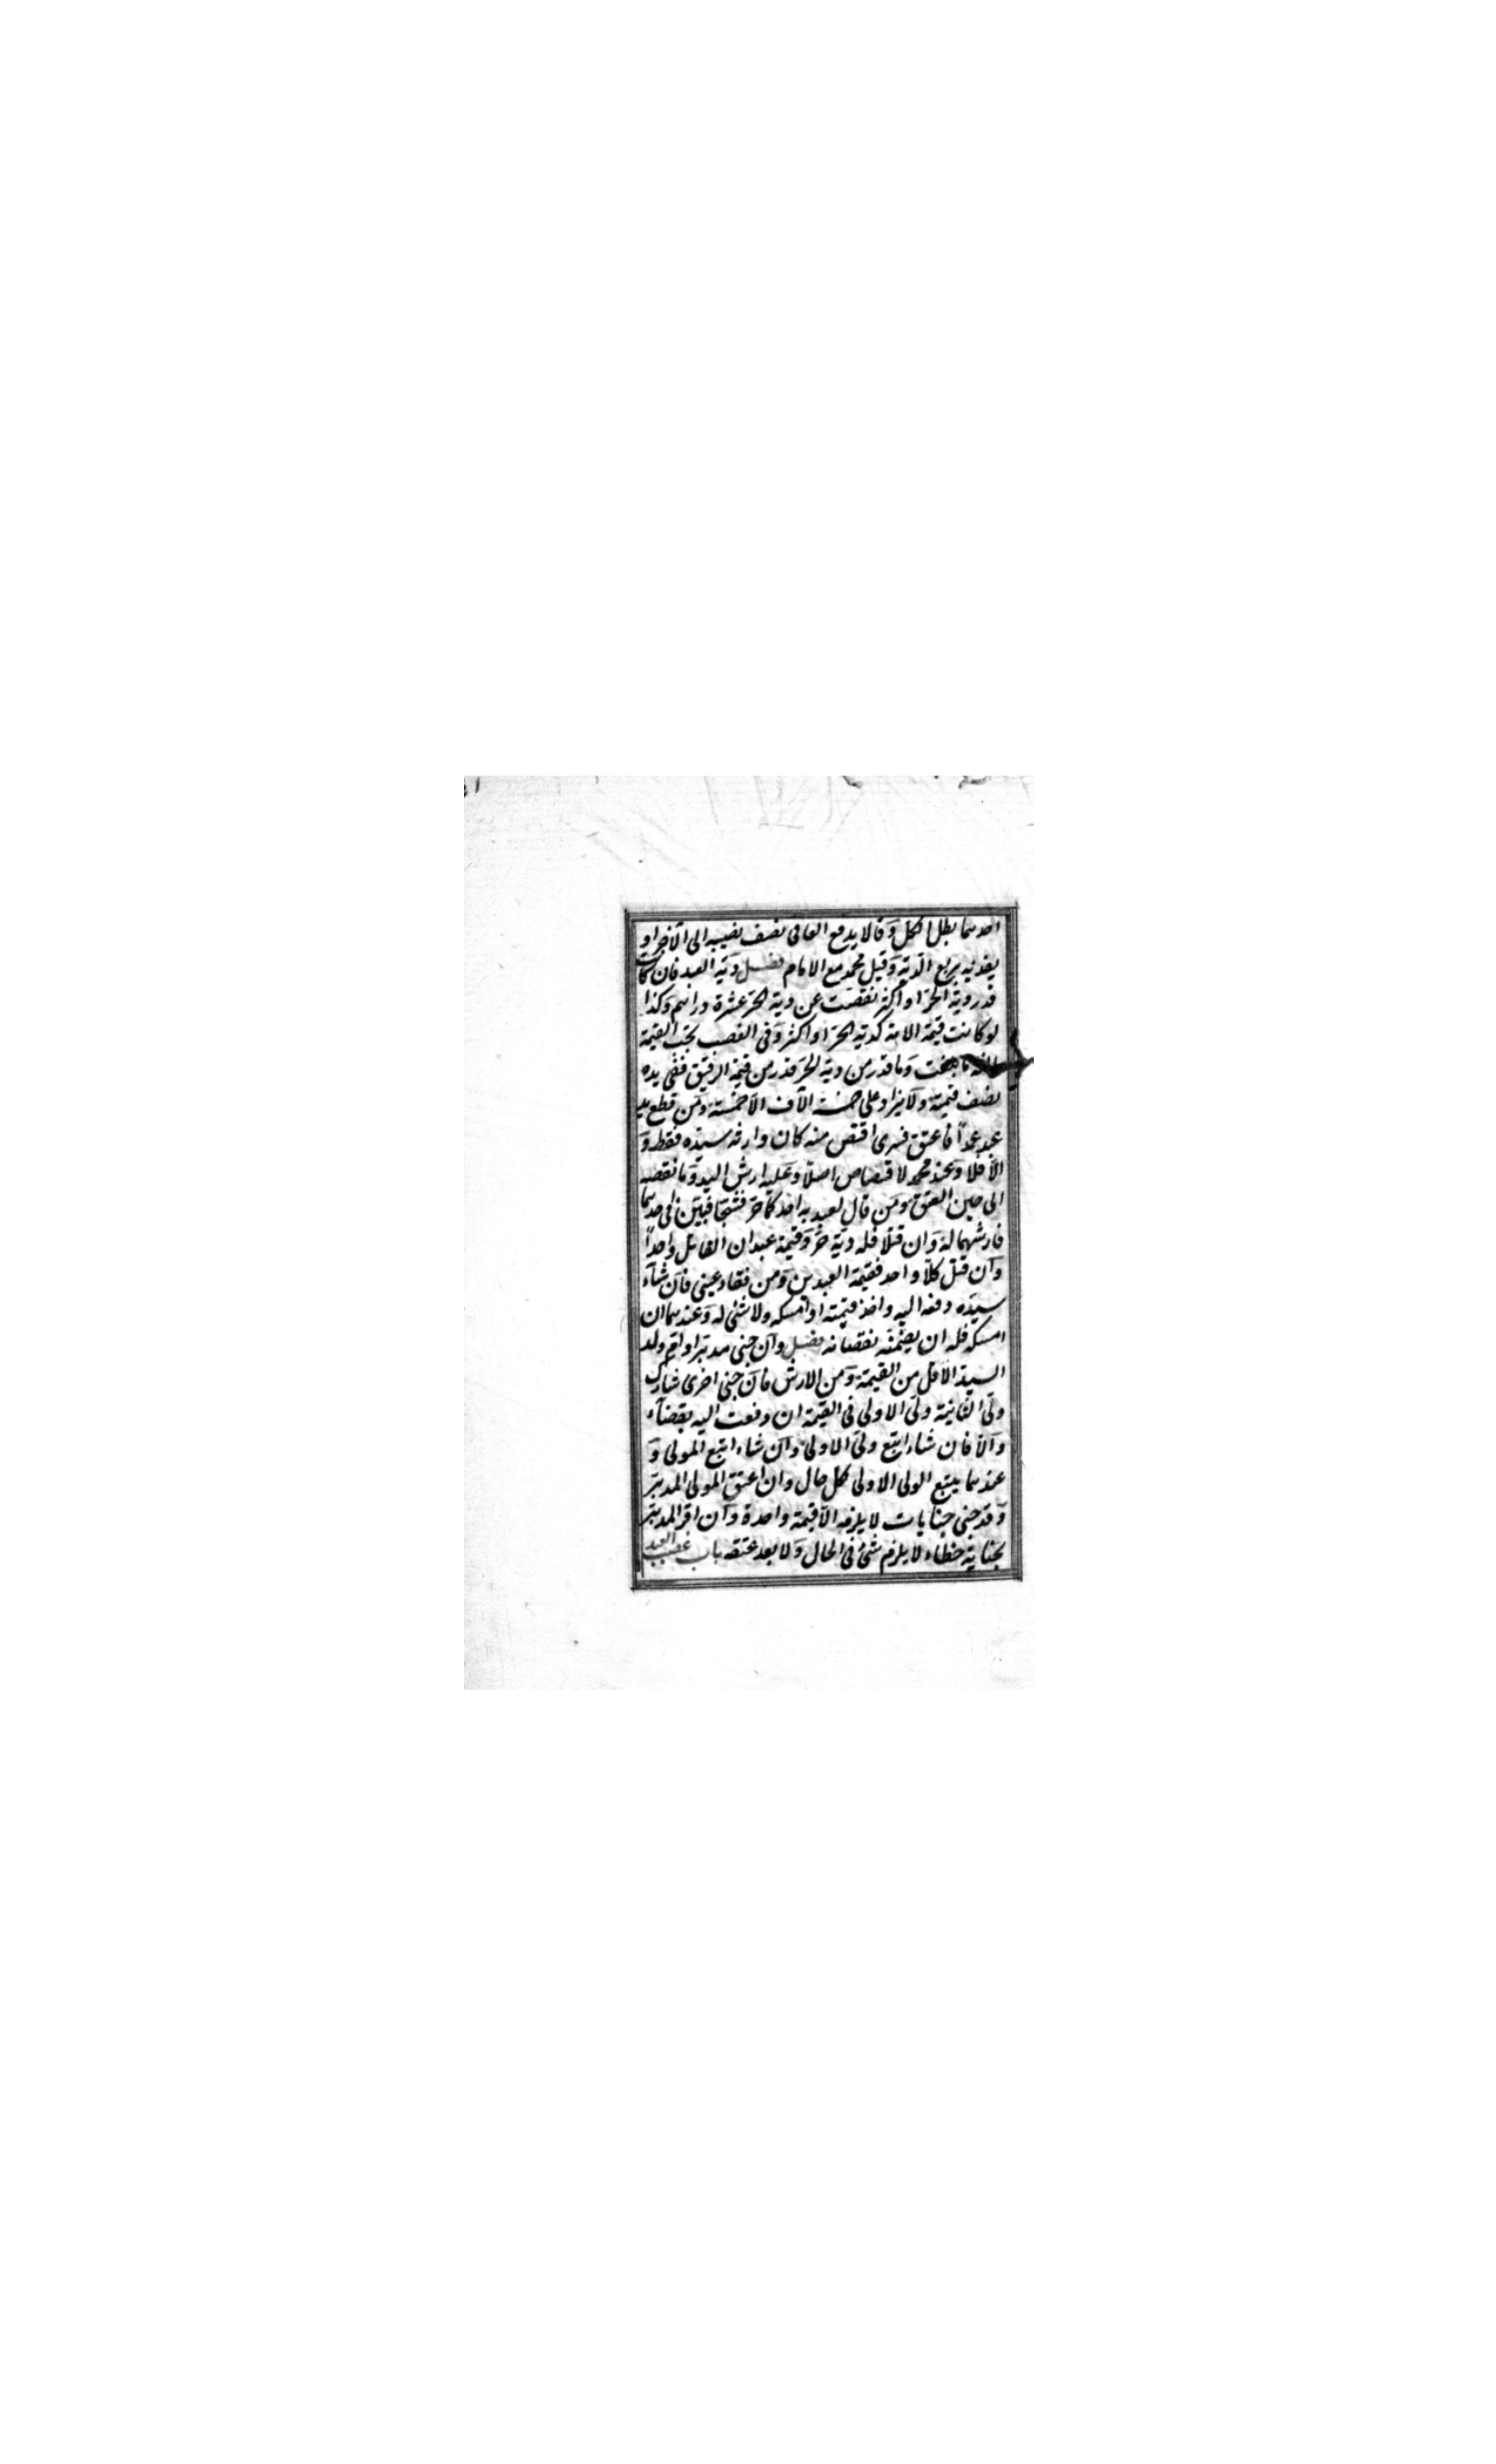 احدهما بطل الكل وقالا يدفع العافى نصف نصيبه الى الآخر او
يفديه بربع الدية وقيل محمد مع الامام فصل دية العبد فان كانت
قدر دية الحر او اكثر نقصت عن دية الحر عشرة دراهم وكذا
لو كانت قيمة الامة كدية الحرة او اكثر وفى الغصب تجب القيمة
بالغة ما بلغت وما قدر من دية الحر قدر من قيمة الرقيق ففى يده
نصف قيمته ولا يزاد على خمسة آلاف الا خمسة ومن قطع يد
عبد عمدًا فاعتق فسرى اقتص منه كان وارثه سيده فقط و
الا فلا وعند محمد لا قصاص اصلا وعليه ارش اليد وما نقصه
الى حين العتق ومن قال لعبديه احدكما حر فشجا فبين فى احدهما
فارشهما له وان قتلا فله دية حر وقيمة عبد ان القاتل واحدًا
وان قتل كلا واحد فقيمة العبدين ومن فقاء عينى فان شآء
سيده دفعه اليه واخذ قيمته او امسكه ولا شئ له وعندهما ان
امسكه فله ان يضمنه نقصانه فصل وان جنى مدبر او ام ولد
السيد الاقل من القيمة ومن الارش فان جنى اخرى شارك
ولى الثانية ولى الاولى فى القيمة ان دفعت اليه بقضآء
والا فان شاء اتبع ولى الاولى وان شاء اتبع المولى و
عندهما يتبع الولى الاولى كل حال وان اعتق المولى المدبر
وقد جنى جنايات لا يلزمه الا قيمة واحدة وان اقر المدبر
بجناية خطاء لا يلزم شئ فى الحال ولا بعد عتقه باب غصب العبد